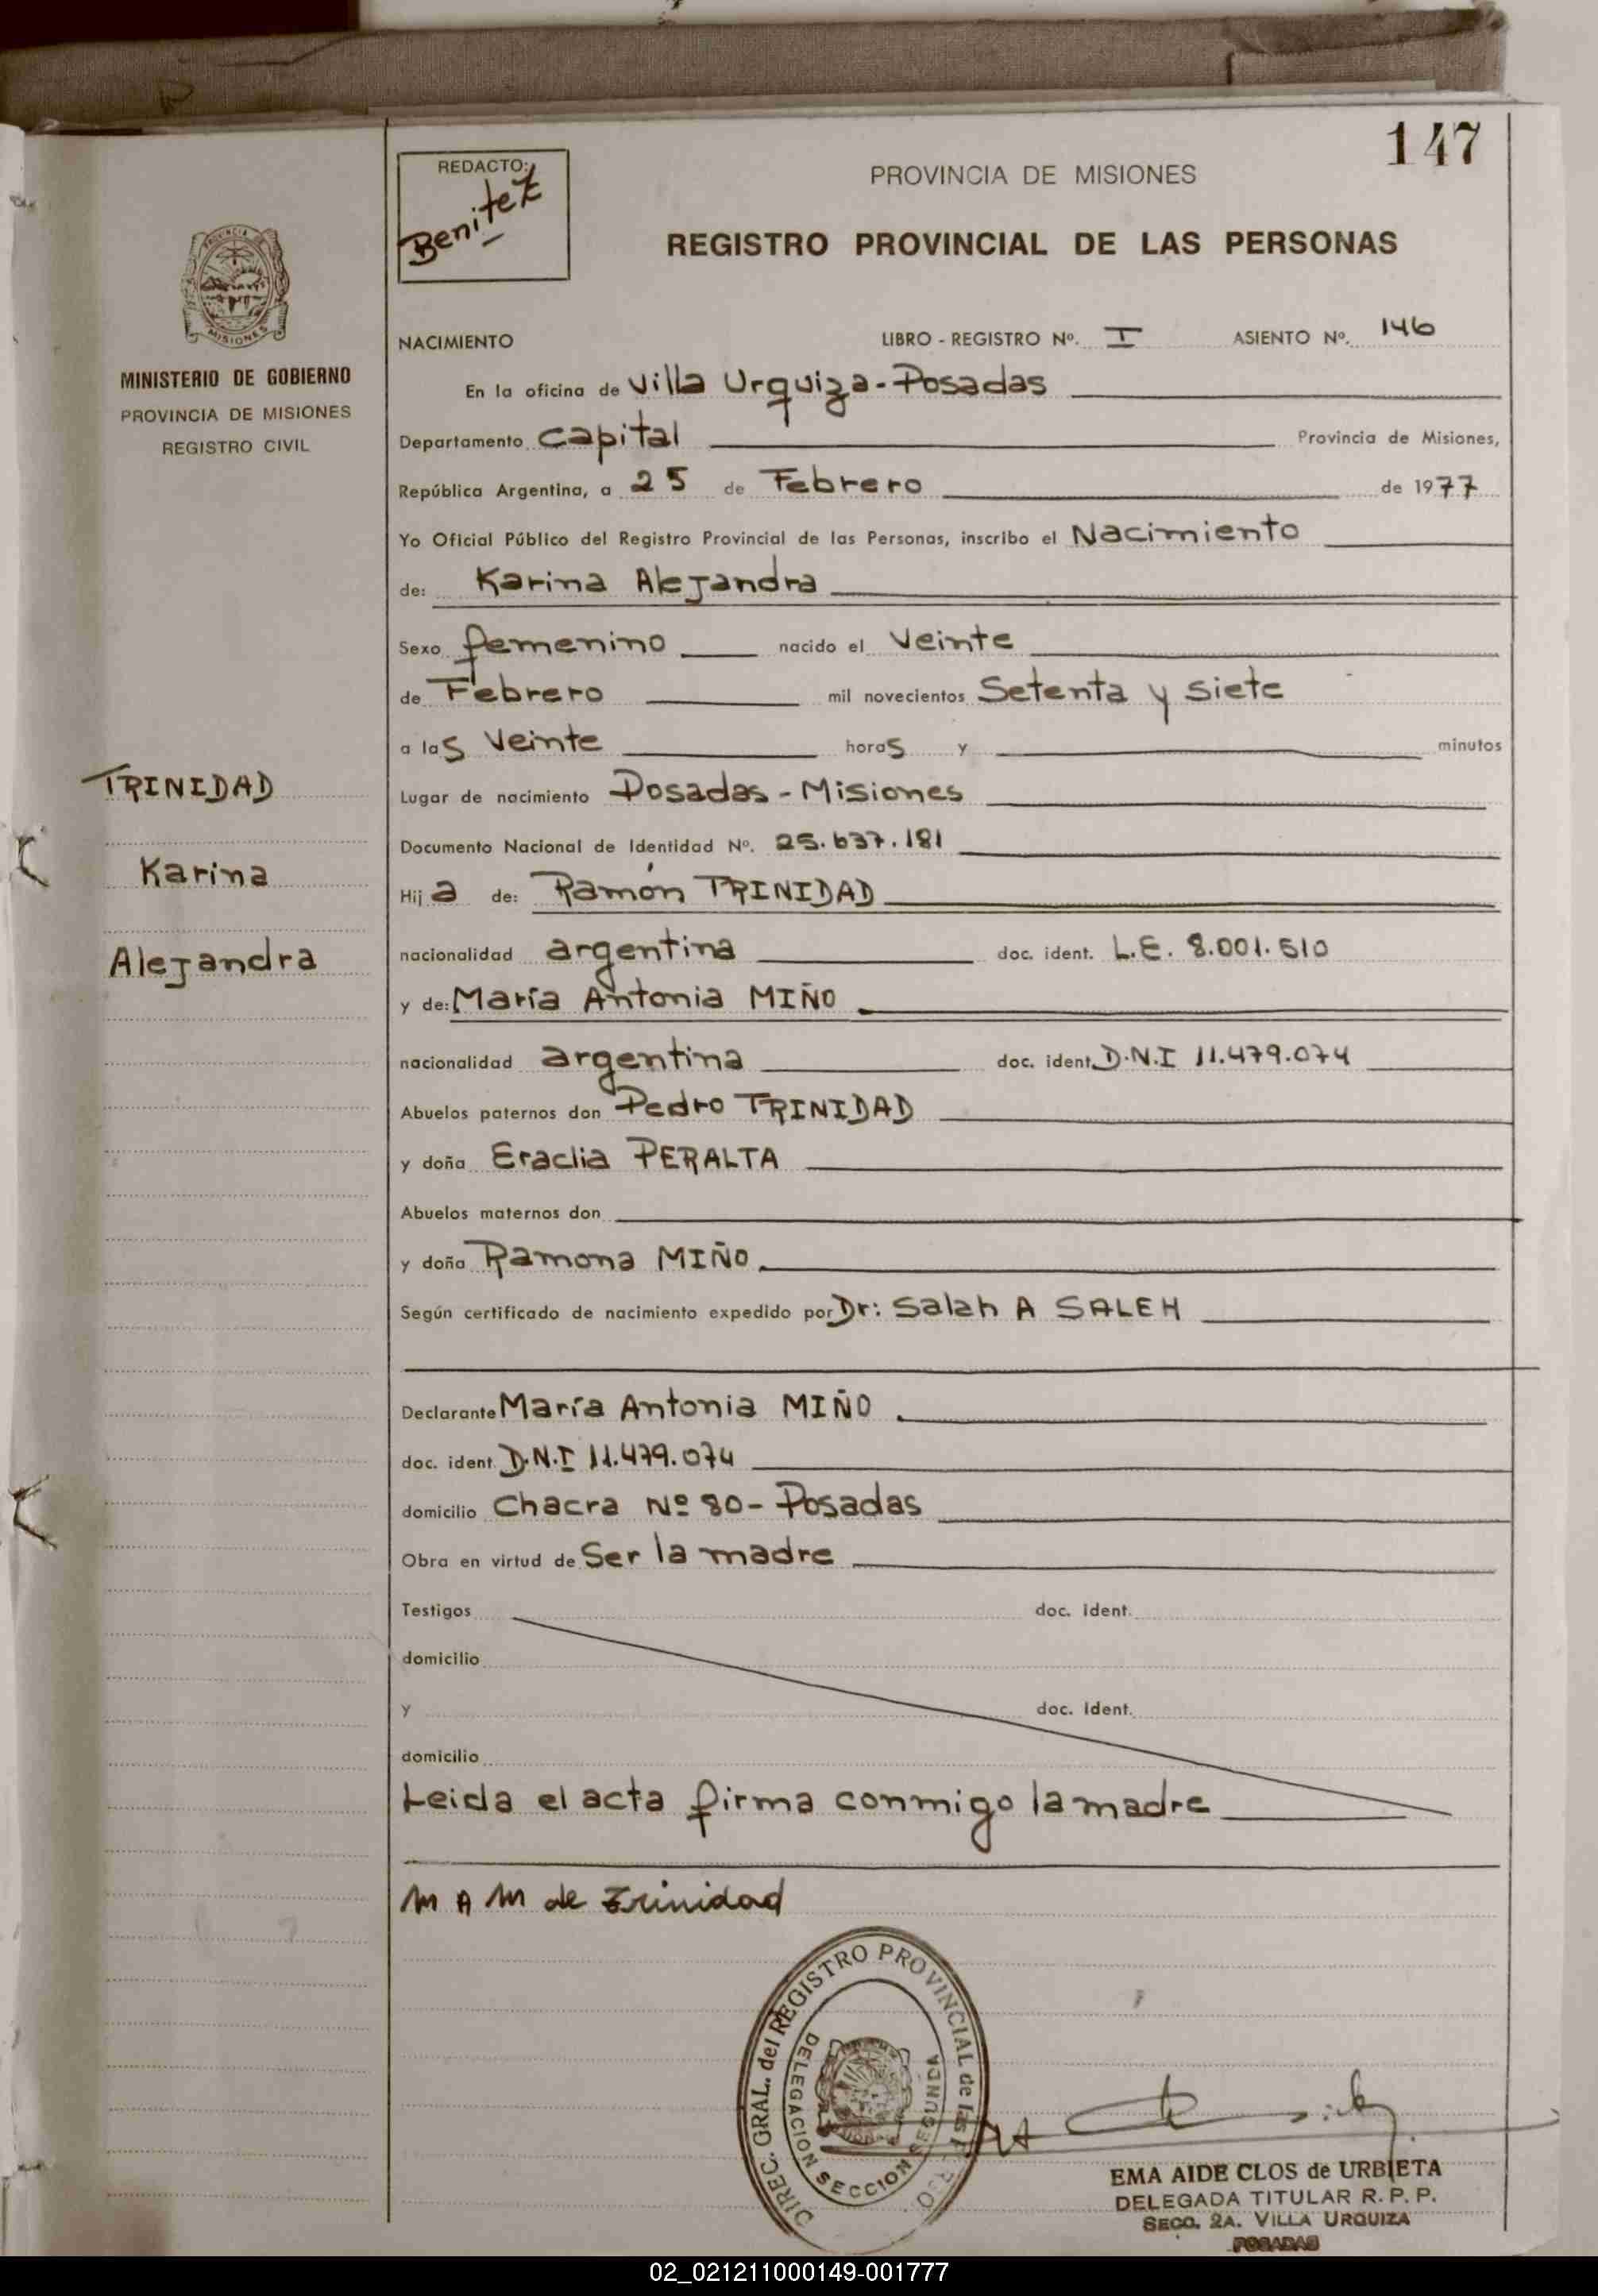 147
REDACTO:
Benitez
PROVINCIA DE MISIONES
REGISTRO PROVINCIAL DE LAS PERSONAS
PROVINCIA DE
MISIONES
MINISTERIO DE GOBIERNO
PROVINCIA DE MISIONES
REGISTRO CIVIL
NACIMIENTO LIBRO - REGISTRO Nº. I ASIENTO Nº. 146
En la oficina de Villa Urquiza - Posadas
Departamento Capital Provincia de Misiones,
República Argentina, a 25 de Febrero de 1977
Yo Oficial Público del Registro Provincial de las Personas, inscribo el Nacimiento
de: Karina Alejandra
Sexo femenino nacido el Veinte
de Febrero mil novecientos Setenta y siete
a las Veinte horas y minutos
TRINIDAD
Karina
Alejandra
Lugar de nacimiento Posadas - Misiones
Documento Nacional de Identidad Nº. 25.637.181
Hija de: Ramón TRINIDAD
nacionalidad argentina doc. ident. L.E. 8.001.510
y de: María Antonia MIÑO
nacionalidad argentina doc. ident. D.N.I 11.479.074
Abuelos paternos don Pedro TRINIDAD
y doña Eraclia PERALTA
Abuelos maternos don
y doña Ramona MIÑO
Según certificado de nacimiento expedido por Dr: Salah A SALEH
Declarante María Antonia MIÑO
doc. ident. D.N.I 11.479.074
domicilio Chacra Nº 80 - Posadas
Obra en virtud de Ser la madre
Testigos doc. ident.
domicilio
y doc. ident.
domicilio
Leida el acta firma conmigo la madre
M A M de Trinidad
DIREC. GRAL. del REGISTRO PROVINCIAL de las
DELEGACION SECCION SEGUNDA
EMA AIDE CLOS de URBIETA
DELEGADA TITULAR R. P. P.
SECC. 2A. VILLA URQUIZA
POSADAS
02_021211000149-001777